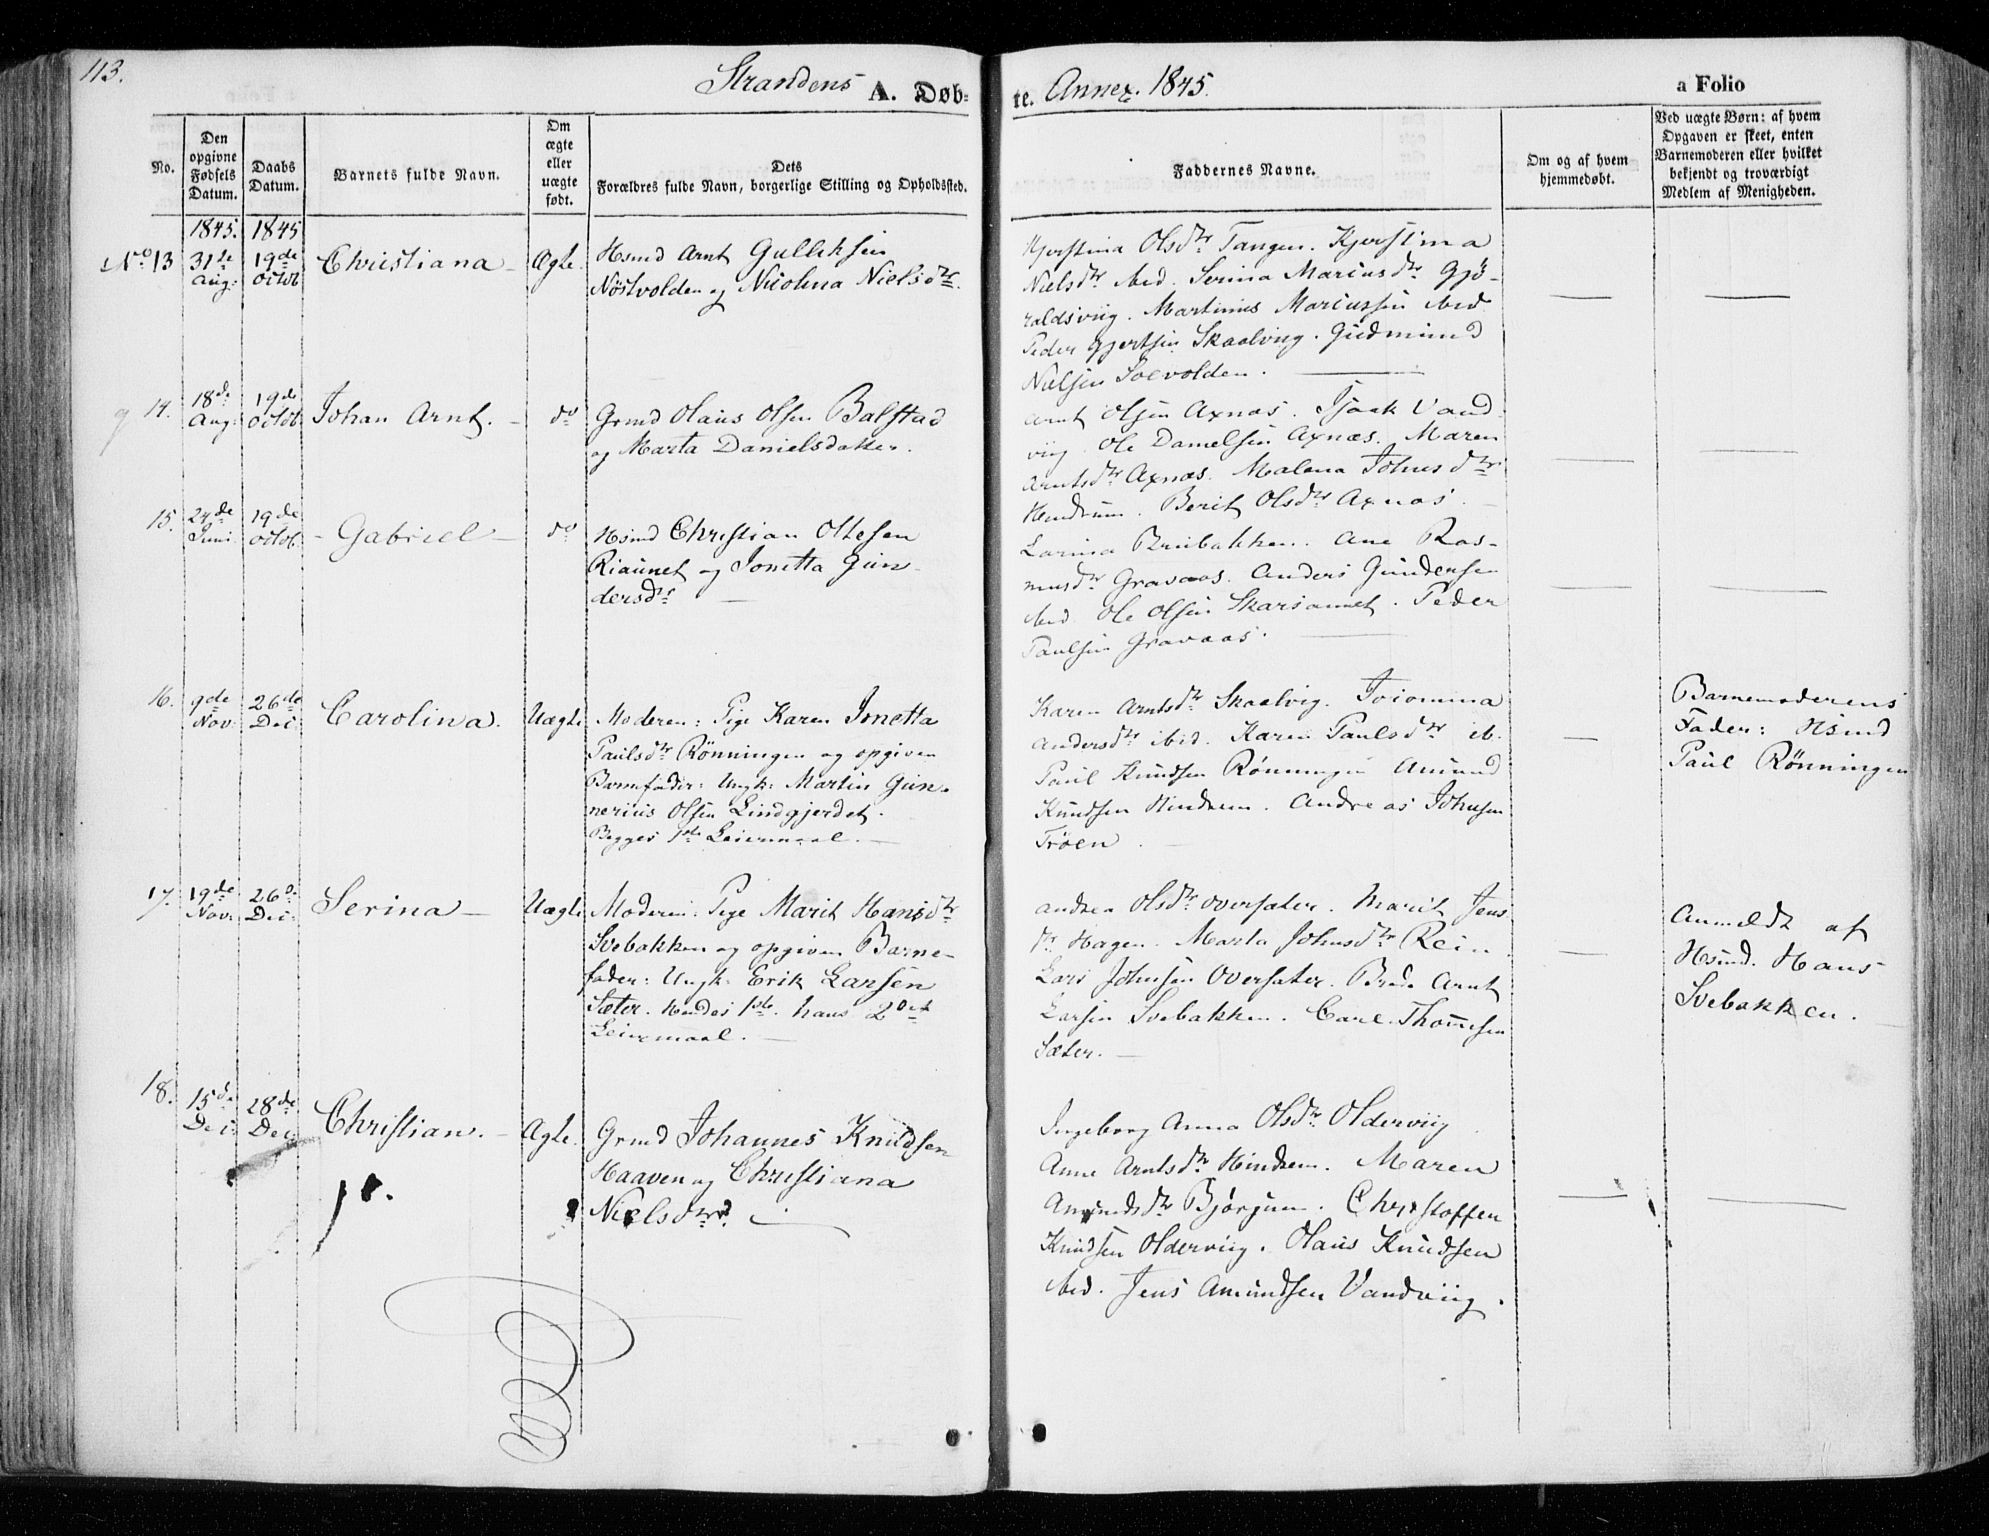 113.
Strandens A. Døb=
te. Annex. 1845.
a Folio
No.
Den opgivne Fødsels Datum.
Daabs Datum.
Barnets fulde Navn.
Om ægte eller uægte født.
Dets Forældres fulde Navn, borgerlige Stilling og Opholdssted.
Faddernes Navne.
Om og af hvem hjemmedøbt.
Ved uægte Børn: af hvem Opgaven er skeet, enten Barnemoderen eller hvilket bekjendt og troværdigt Medlem af Menigheden.
1845. 1845
No 13 31te Aug: 19de Octob Christiana Ægte.
Hsmd Arnt Gulliksen
Nöstvolden og Nicolina Nielsdtr.
Kjerstina Olsdtr Tangen. Kjerstina
Nielsdtr ibid. Serina Mariusdtr Gjö-
raldsviig. Martinus Mariussen ibid
Peder Gjertsen Skaalviig. Gudmund
Nielsen Soevolden.
14. 18de Aug: 19de Octob Johan Arnt. do
Grmd Olaus Olsen Balstad
og Marta Danielsdatter.
Arnt Olsen Axnæs. Isaak Vand-
viig. Ole Danielsen Axnæs. Maren
Arntsdtr Axnæs. Malena Johnsdtr
Hendrum. Berit Olsdtr Axnæs.
15. 24de Juni 19de Octob. Gabriel do
Hsmd Christian Ottesen
Riaunet og Jonetta Gun-
dersdtr
Larina Brubakken. Ane Ras-
musdtr Gravaas. Anders Gundersen
ibid. Ole Olsen Skarsaunet. Peder
Paulsen Gravaas.
16. 9de Nov: 26de Dec: Carolina. Uægte
Moderen: Pige Karen Jonetta
Paulsdtr Rönningen og opgiven
Barnefader: Ungk: Martin Gun-
nerius Olsen Lindgjerdet.
Begges 1ste Leiermaal.
Karen Arntsdtr Skaalvig.
Andersdtr ibid. Karen Paulsdtr ib.
Paul Knudsen Rönningen Amund
Knudsen Hindrem. Andreas Johnsen
Tröen.
Barnemoderens
Fader: Hsmd
Paul Rönningen
17. 19de Nov: 26de Dec: Serina Uægte
Moderen: Pige Marit Hansdtr
Svebakken og opgiven Barne-
fader: Ungk: Erik Larsen
Sæter. Hendes 1ste. hans 2det
Leiermaal.
Andrea Olsdtr Oversæter. Marit Jens
dtr Hagen. Marta Johnsdtr Rein.
Lars Johnsen Oversæter. Arnt
Larsen Svebakken. Carl Thomesen
Sæter.
Anmeldt af
Hsmd. Hans
Svebakken.
18. 15de Dec: 28de Dec: Christian. Ægte.
Grmd Johannes Knudsen
Haaven og Christiana
Nielsdtr.
Ingeborg Anna Olsdtr Olderviig
Anne Arntsdtr Hindrem. Maren
Amundsdtr Björgum. Christoffen
Knudsen Olderviig. Olaus Knudsen
ibid. Jens Amundsen Vandviig.